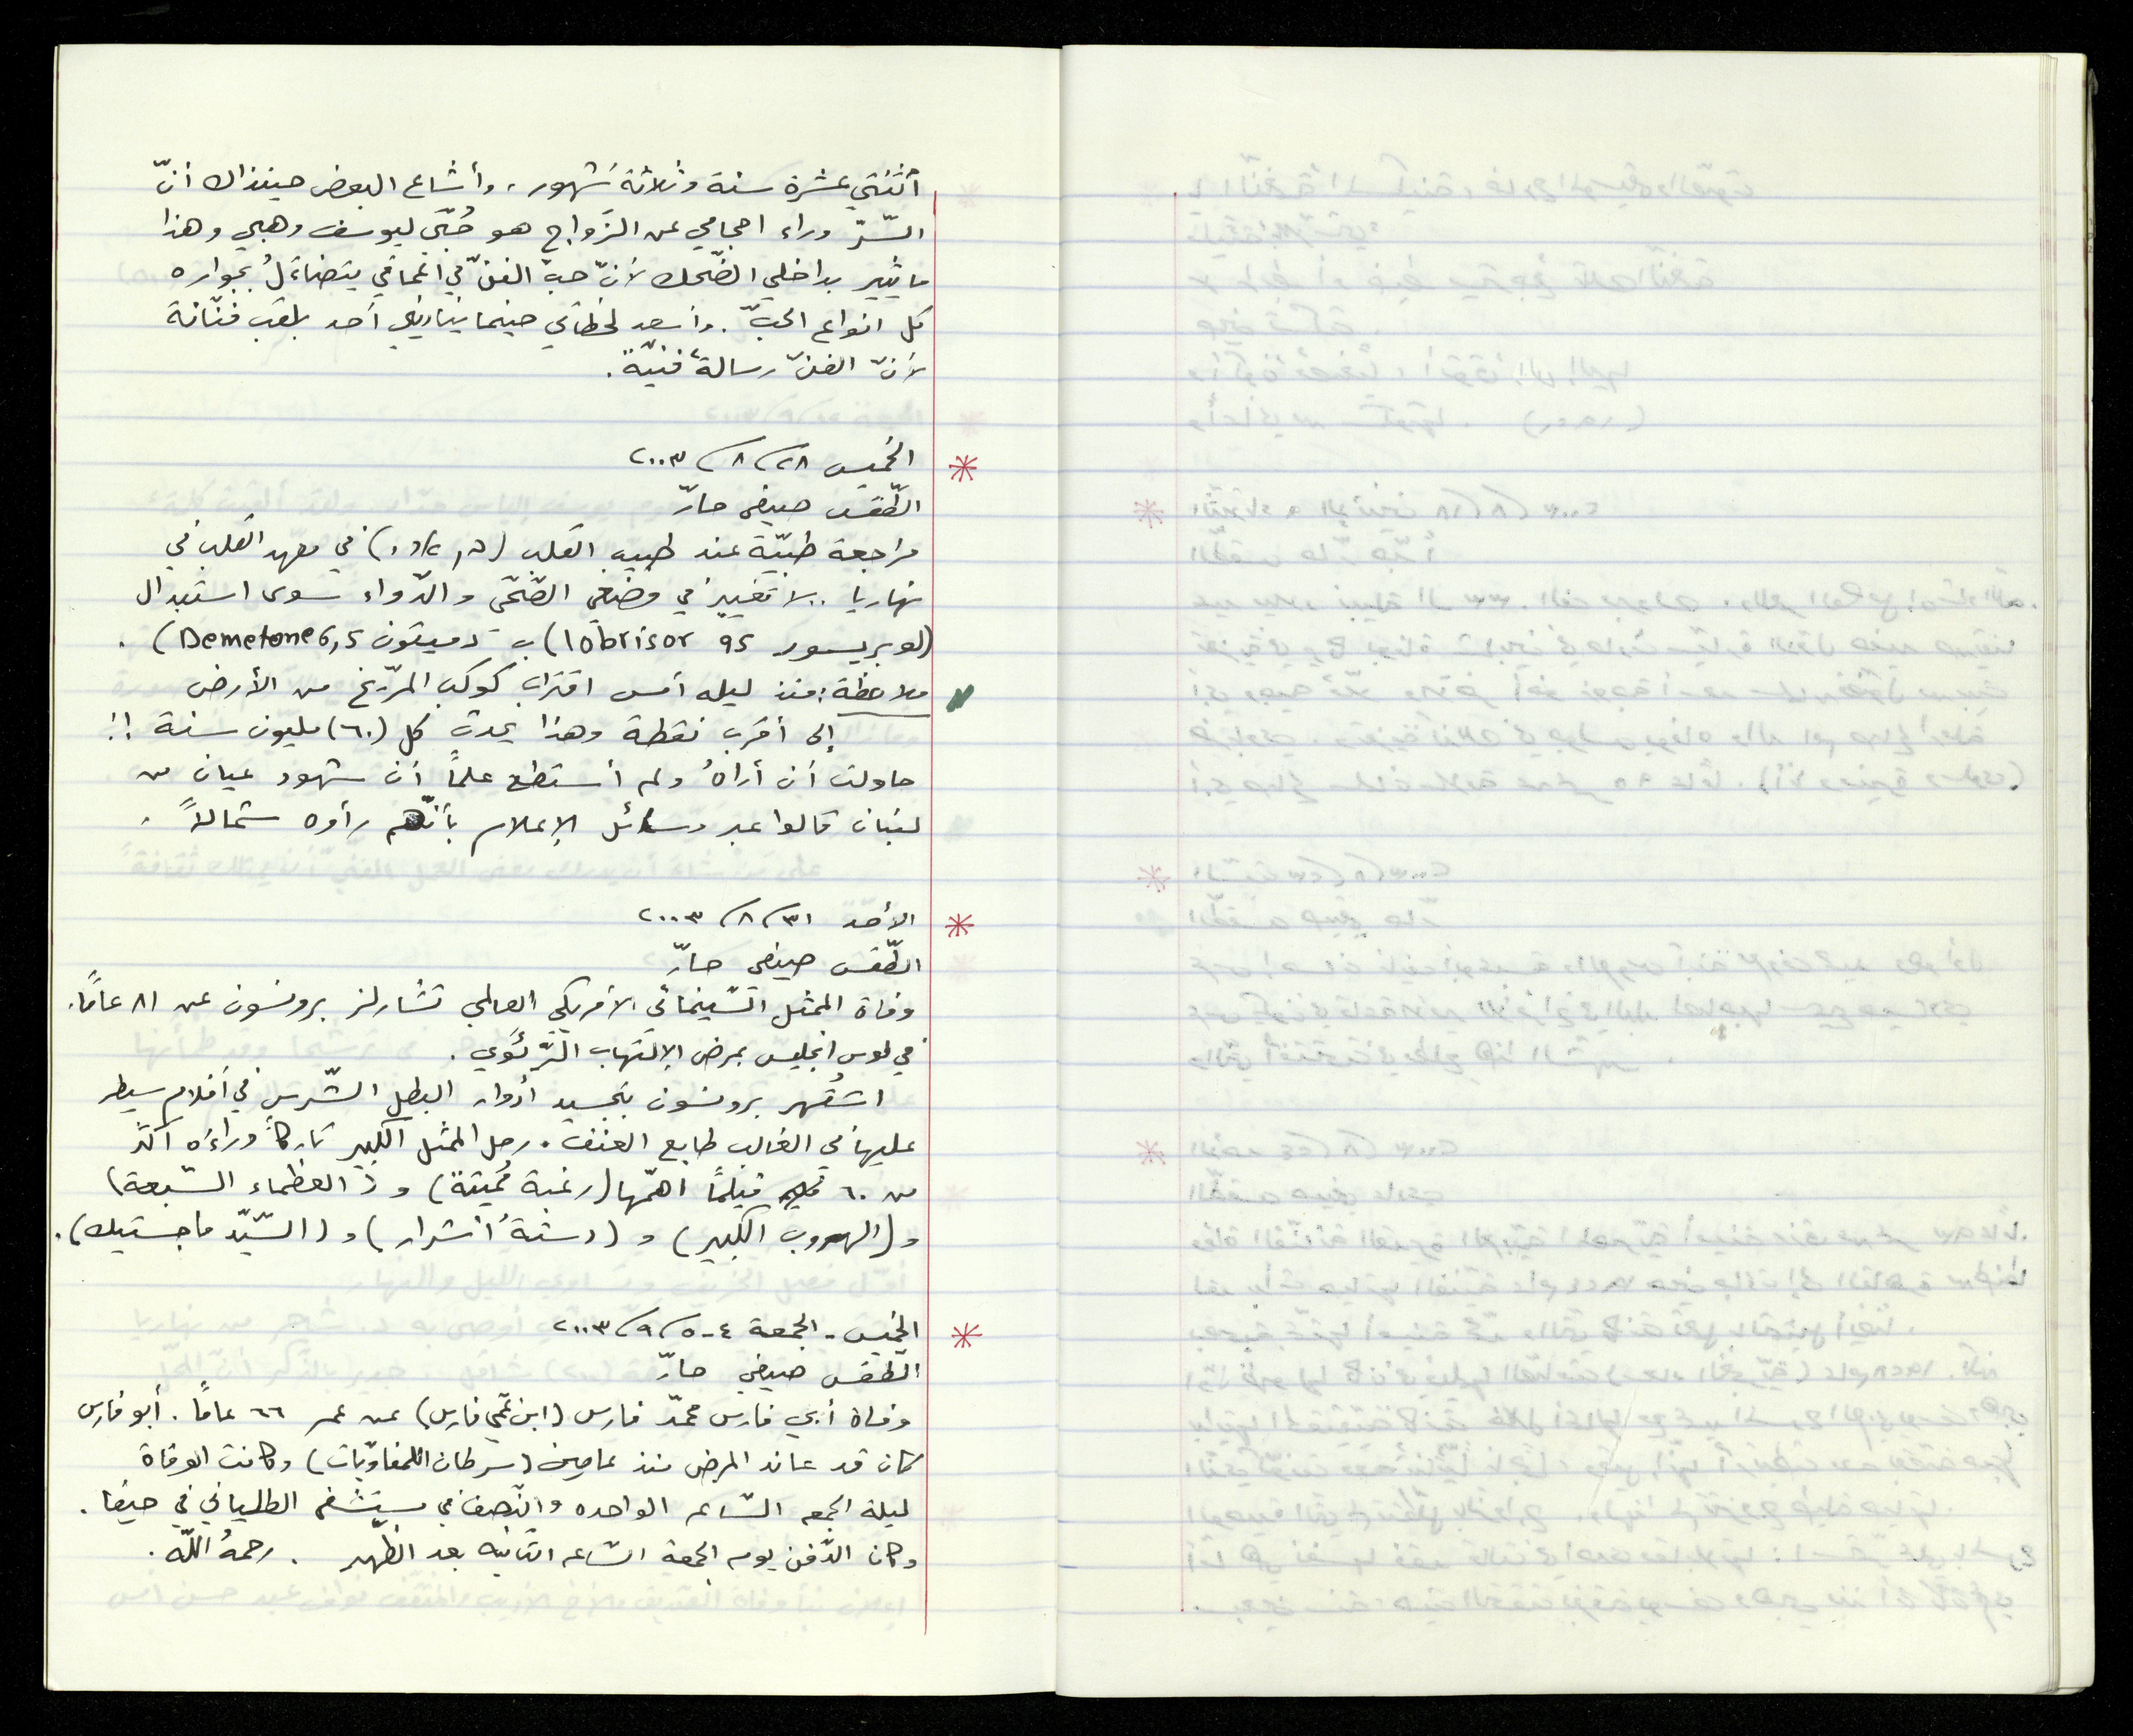 أثنتي عشرة سنة وثلاثة شهور، وأشاع البعض حينذاك أنّ
السّرّ وراء احجامي عن الزّواج هو حُبّي ليوسف وهبي وهذا
ما يثير بداخلي الضّحك لأنّ حبّ الفنّ في أعماقي يتضاءَلُ بجواره
كل انواع الحبّ. وأسعد لحظاتي حينما يناديني أحد بلقب فنّانة
لأنّ الفنّ رسالةٌ فنيّة.
* الخميس ٢٨/٨/٢٠٠٣
الطّقس صيفي حارّ
مراجعة طبيّة عند طبيب القلب في معهد القلب في
نهاريا .. لا تغيير في وضعي الصّحّي والدّواء سوى استبدال
(لوبريسور 95 lobrisor) ب - دميتون Demetone 6,5) .
ملاحظة: منذ ليله أمس اقتراب كوكب المرّيخ من الأرض
إلى أقرب نقطة وهذا يحدث كل (٦٠) مليون سنة !!
حاولت أن أراهُ ولم أستطع علماً أن شهود عيان من
لبنان قالوا عبر وسائل الإعلام بأنّهم رأوه شمالاً .
* الأحد ٣١/٨/٢٠٠٣
الطّقس صيفي حارّ
وفاة الممثل السّينمائي الأمريكي العالمي تشارلز برونسون عن ٨١ عامًا.
في لوس انجليس بمرض الإلتهاب الرّئوي .
اشتُهر برونسون بتجسيد أدوار البطل الشّرس في أفلام سيطر
عليها في الغالب طابع العنف. رحل الممثل الكبير تاركاً وراءَه أكثر
من ٦٠ فيلمًا اهمّها (رغبة مُميتة) و (العظماء السّبعة)
و (الهروب الكبير) و (دستةُ أشرار) و (السّيّد ماجستيك).
* الخميس - الجمعة ٤-٥/٩/٢٠٠٣
الطقس صيفي حارّ
وفاة أبي فارس محمّد فارس (ابن عمّي فارس) عن عمر ٦٦ عامًا. أبو فارس
كان قد عاند المرض منذ عامين (سرطان اللمفاويّات) وكانت الوفاة
ليلة الجمعه السّاعه الواحده والنّصف في مستشفى الطلياني في حيفا.
وكان الدّفن يوم الجمعة السّاعه الثّانيه بعد الظّهر . رحمهُ اللّه.